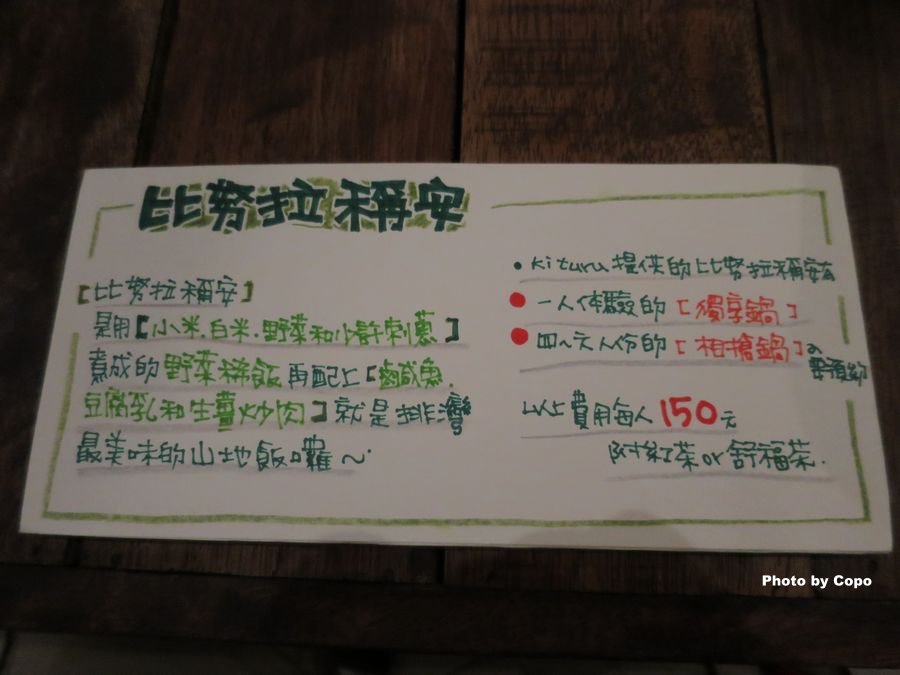 比努拉稱安
[比努拉稱安]
是用[小米.白米.野菜和少許刺蔥]
煮成的野菜稀飯再配上[鹹魚.
豆腐乳和生薑炒肉]就是排灣
最美味的山地飯囉~.
• Kituru提供的比努拉稱安有
● 一人体驗的[獨享鍋]
● 四~六人份的[相搶鍋]
要預約
以上費用每人150元
附紅茶or舒福茶.
Photo by Copo